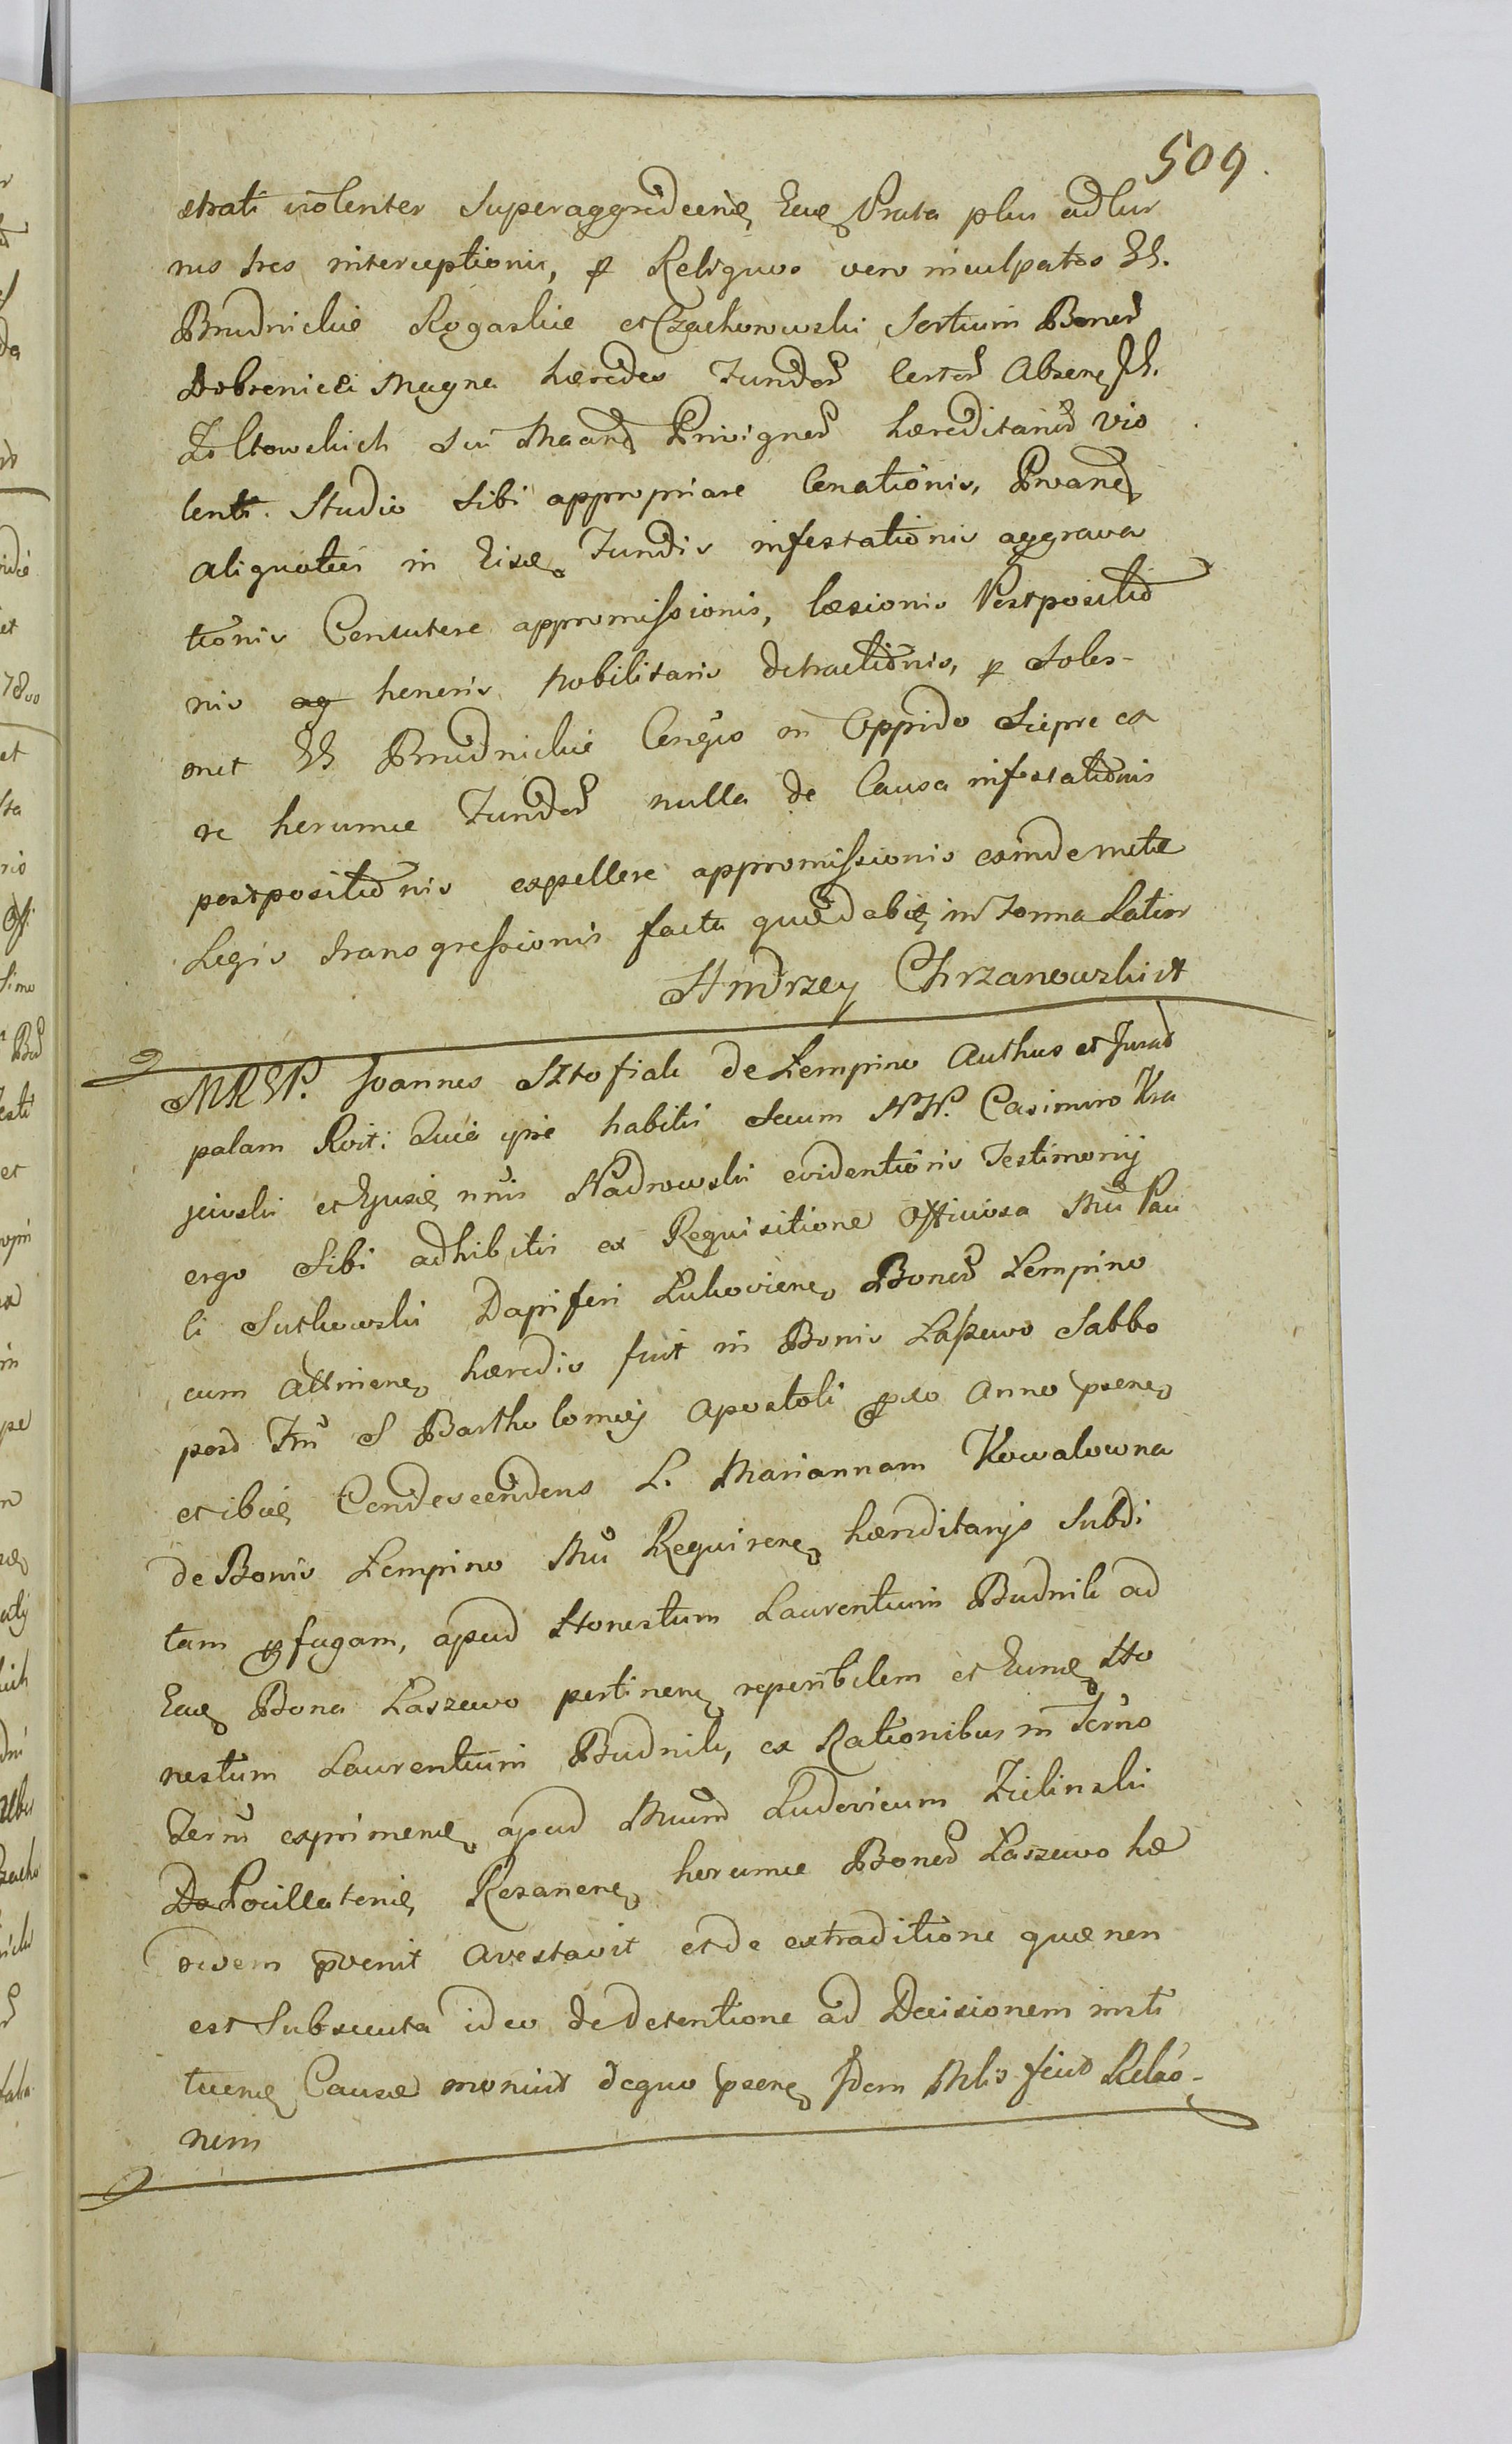 509.
strati violenter Superaggrediene Eaue Prata plus adlur
nus tres interceptionis, & Reliquos vero inculpatos GG.
Brudnickie Rogaskie et Czachorowski Sortium Bonor
Dobrenicei Magna hæredes Fundor Certor Absene JG.
Zoltowskich Sui Maand Privignor hæreditarior vio
lenti. Studio Sibi appropriare Conationis, Pvaned
aliquoties in Eisde Fundis infestationis aggrava
tionis Concutere appromissionis, læsionis Postpositio
nis heneris Nobilitaris detractionis, & Soler-
met GG Brudnickie Congso in Oppido Sieprc ex
re horumce Fundor nulla de Causa infestationis
postpositionis expellere appromissionis exindemetae
Legis transgressionis facta quædabit in Forma Latior
Andrzey Chrzanowski
MREP. Joannes Sztofiak de Lempino Authus et Jurad
palam Rvit: Quia ipse habitis Secum NN. Casimiro Kra
jewski et Ejusde nnis Nadrowski evidentioris Testimonij
ergo Sibi adhibitis ex Requisitione Officiosa Mci Pau
li Sutkowski Dapiferi Lukoviene Bonor Lempino
cum Attinene hæredis fuit in Bonis Laszewo Sabbo
post Fm S Bartholomæi Apostoli pxo Anno psene
et ibide Condescendens L. Mariannam Kowalowna
de Bonis Lempino Mci Requirene hæreditarijs Subdi
tam pfugam, apud Honestum Laurentium Budnik ad
Eade Bona Laszewo pertinene reperibilem et Eunde Ho
nestum Laurentium Budnik, ex Rationibus in Terno
Termi exprimene apud Mcum Ludovicum Zielinski
Pocillatorie Rozanene horumce Bonor Laszewo hæ
redem pvenit Arestavit et de extraditione quæ non
est Subsecuta ideo de detentione ad Decisionem insti
tuene Causæ monuit dequo psene Idem Mlis fecit Relao-
nem